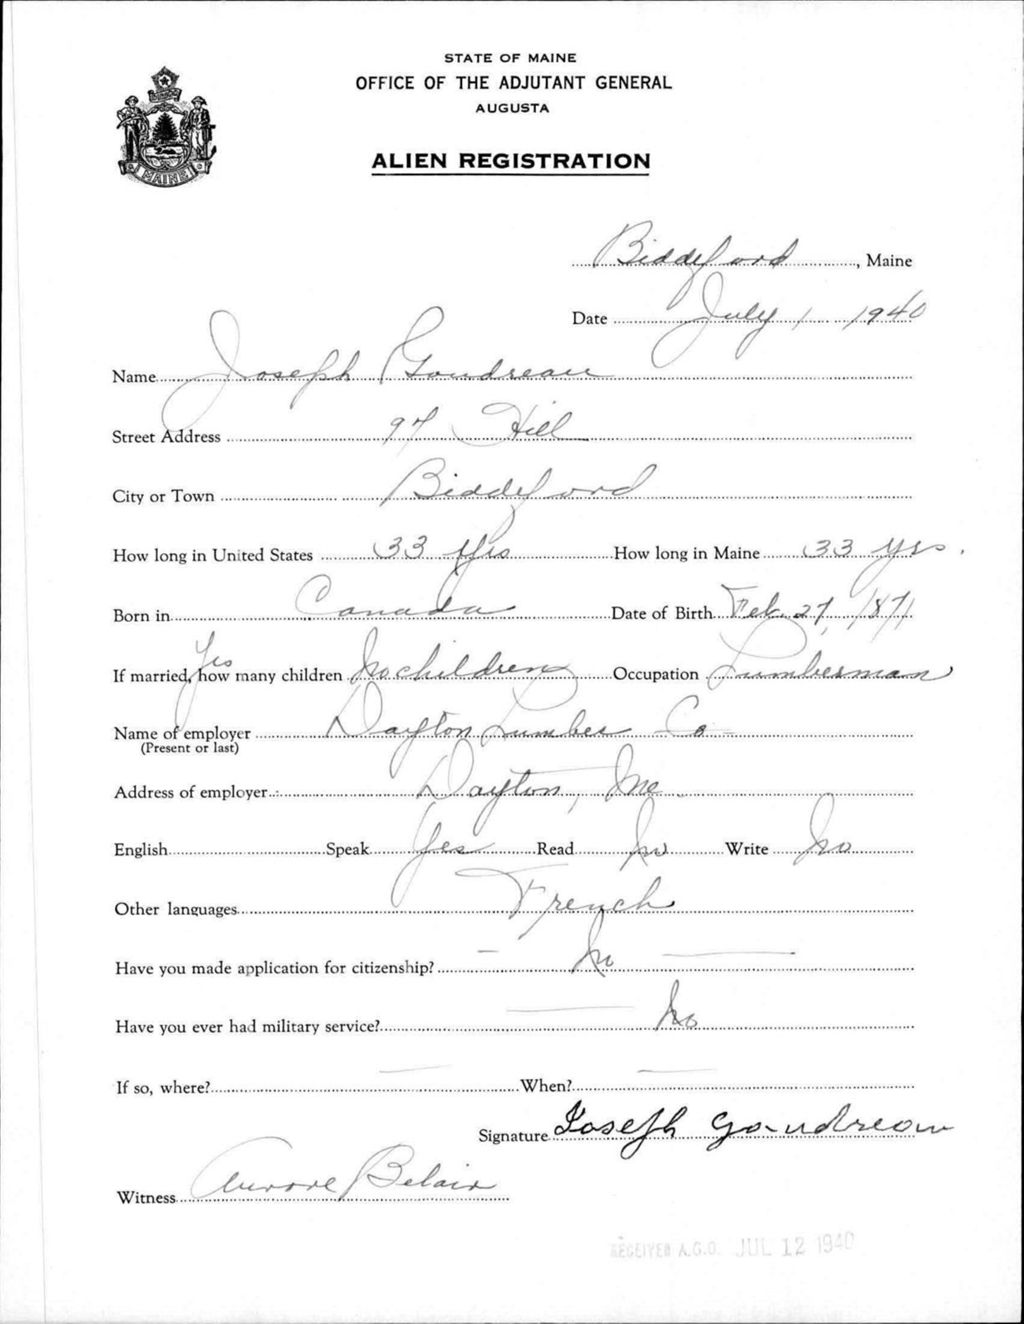 STATE OF MAINE
OFFICE OF THE ADJUTANT GENERAL
AUGUSTA
MAINE
ALIEN REGISTRATION
Biddeford, Maine
Date July 1 1940
Name Joseph Goudreau
Street Address 97 Hill
City or Town Biddeford
How long in United States 33 Yrs How long in Maine 33 yrs.
Born in Canada Date of Birth Feb. 27, 1871
Yes
If married, how many children No children Occupation Lumberman
Name of employer Dayton Lumber Co
(Present or last)
Address of employer Dayton, Me.
English Speak Yes Read No Write No
Other languages French
Have you made application for citizenship? — No —
Have you ever had military service? — No
If so, where? — When? —
Signature Joseph Goudreau
Witness Aurore Belair
RECEIVED A.G.O. JUL 12 1940